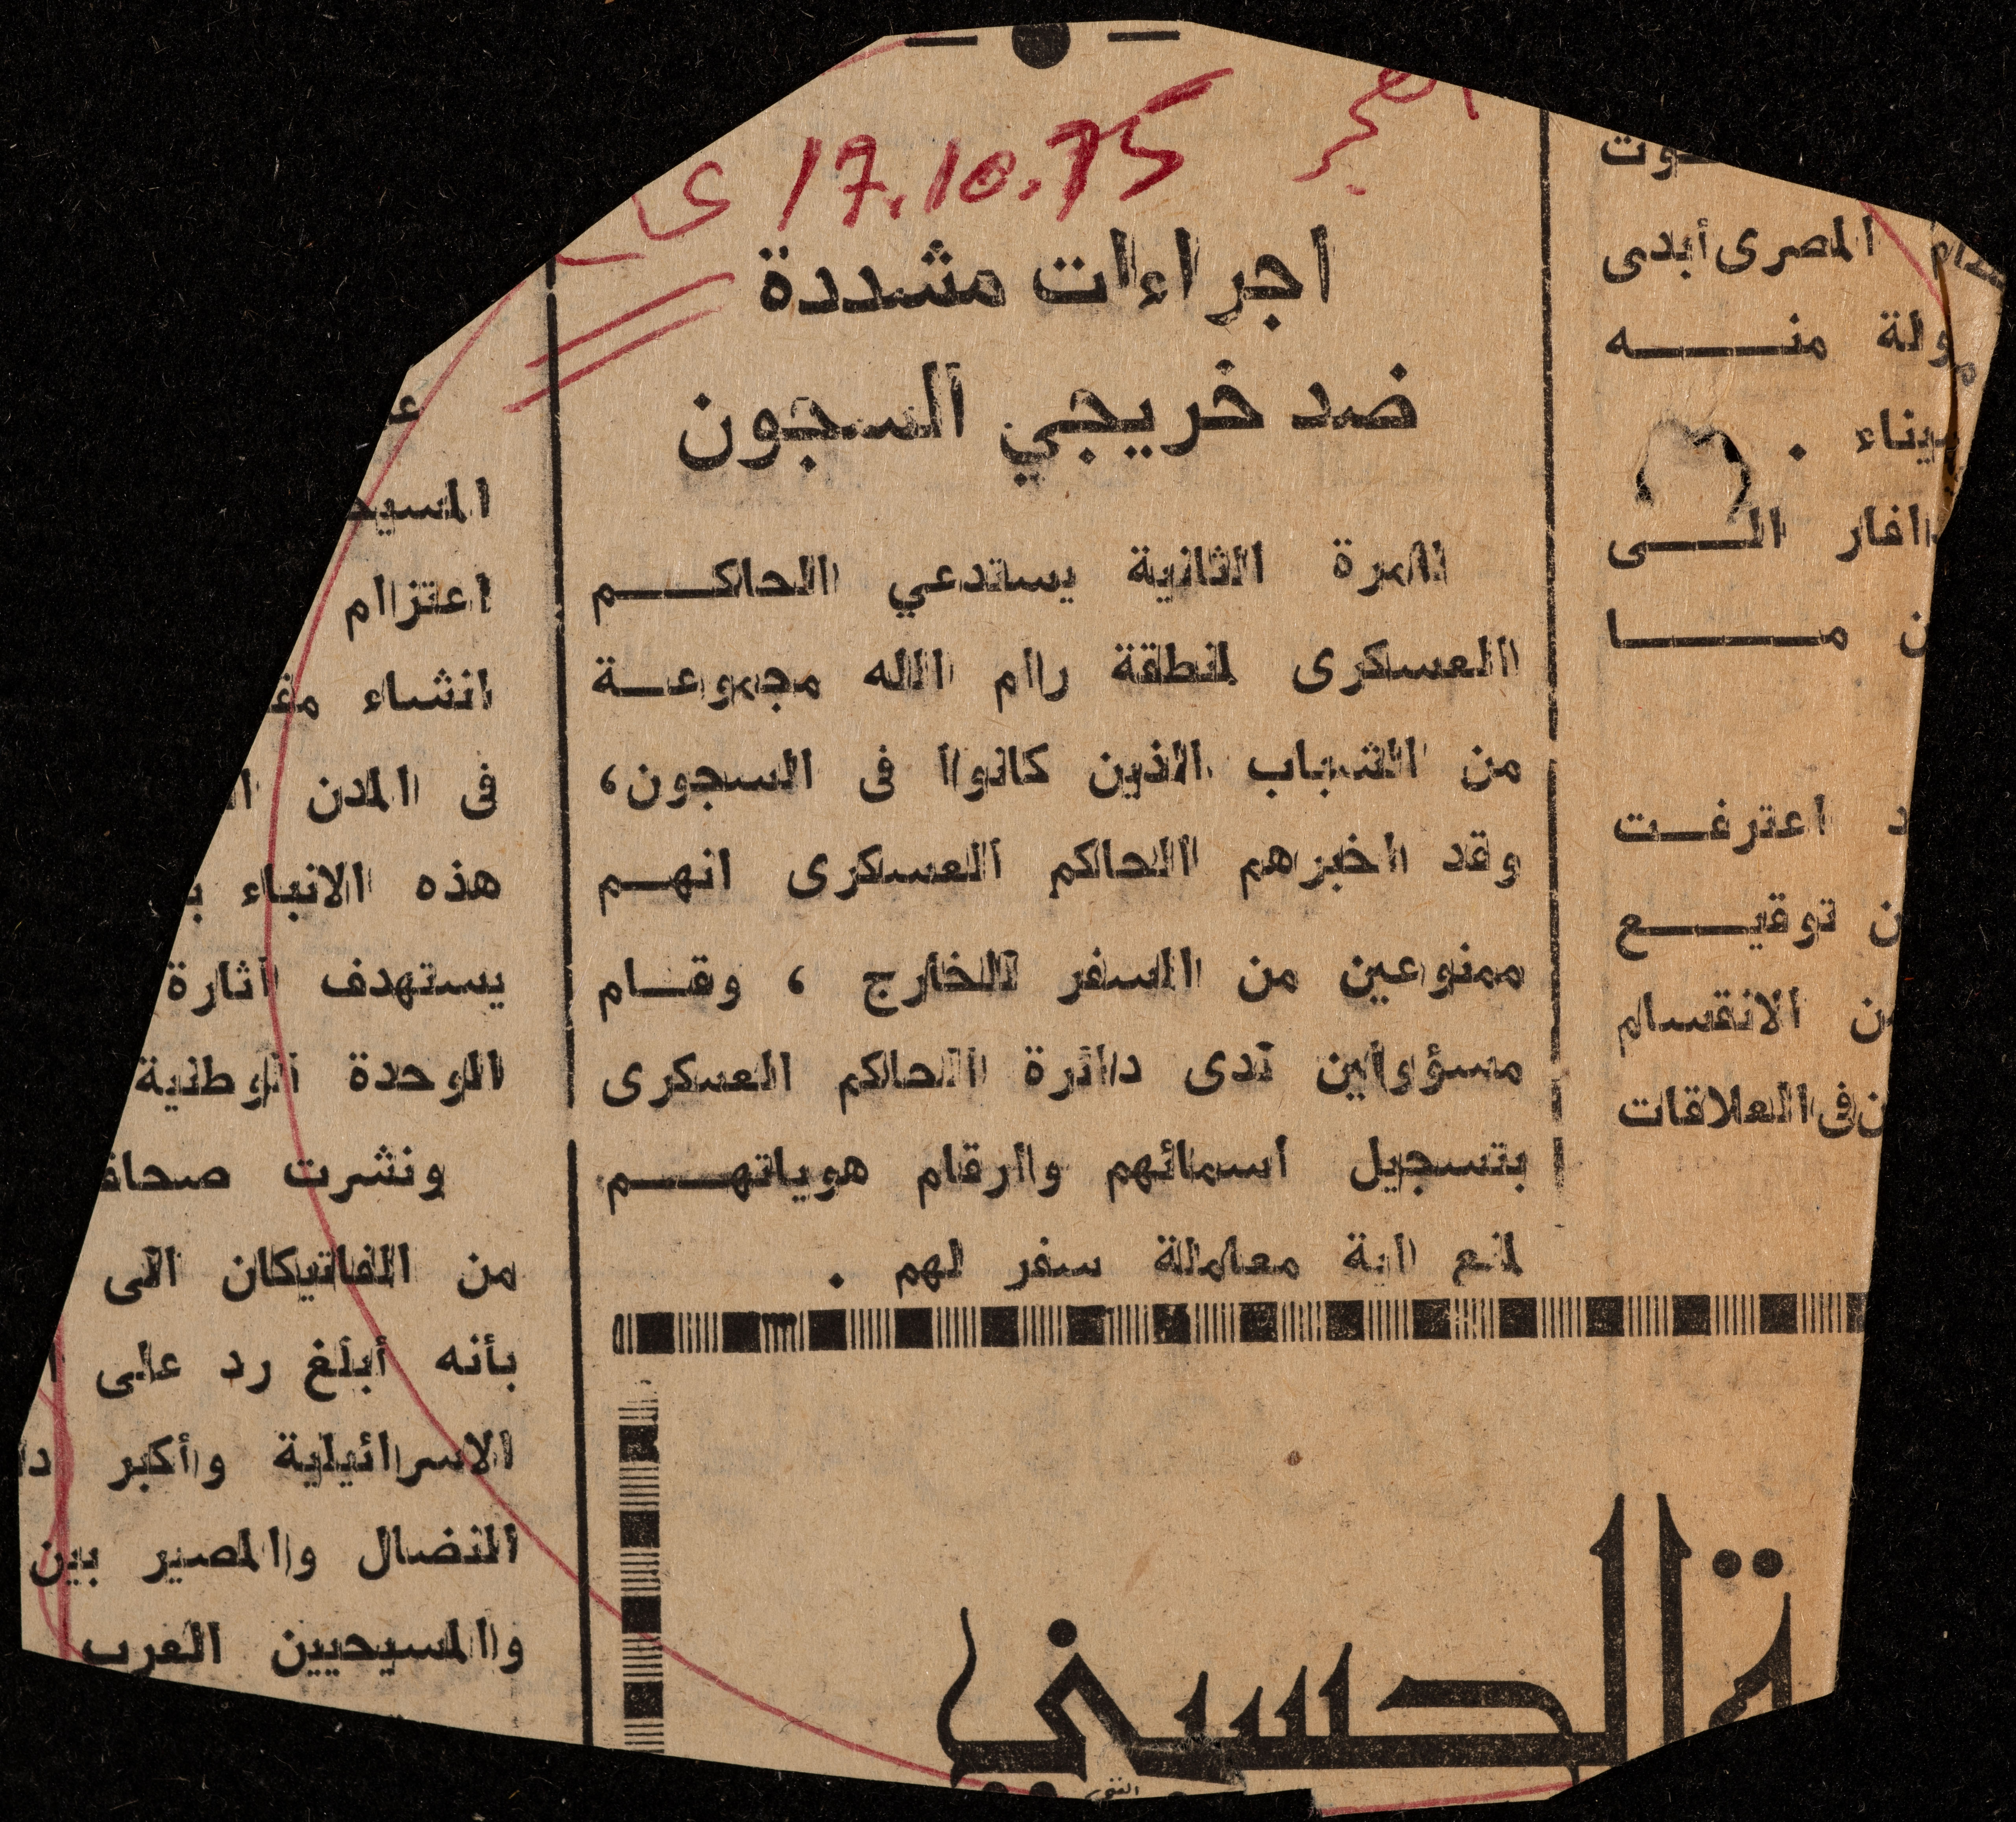 17.10.75
اجراءات مشددة
ضد خريجي السجون
للمرة الثانية يستدعي الحاكـــم
العسكرى لمنطقة رام الله مجموعـة
من الشباب الذين كانوا فى السجون،
وقد اخبرهم الحاكم العسكرى انهـم
ممنوعين من السفر للخارج ، وقـام
مسؤولين لدى دائرة الحاكم العسكرى
بتسجيل اسمائهم وارقام هوياتهـــم
لمنع اية معاملة سفر لهم .
المصرى أبدى
منـــه
.
الـــى
ن مـــا
د اعترفـت
ن توقيـــع
ن الانقسام
ن فى العلاقات
المسيح
اعتزام
انشاء
فى المدن
هذه الانباء
يستهدف اثارة
الوحدة الوطنية
ونشرت صحاف
من الفاتيكان الى
بأنه أبلغ رد على
الاسرائيلية وأكبر دا
النضال والمصير بين
والمسيحيين العرب
ة الحسيني